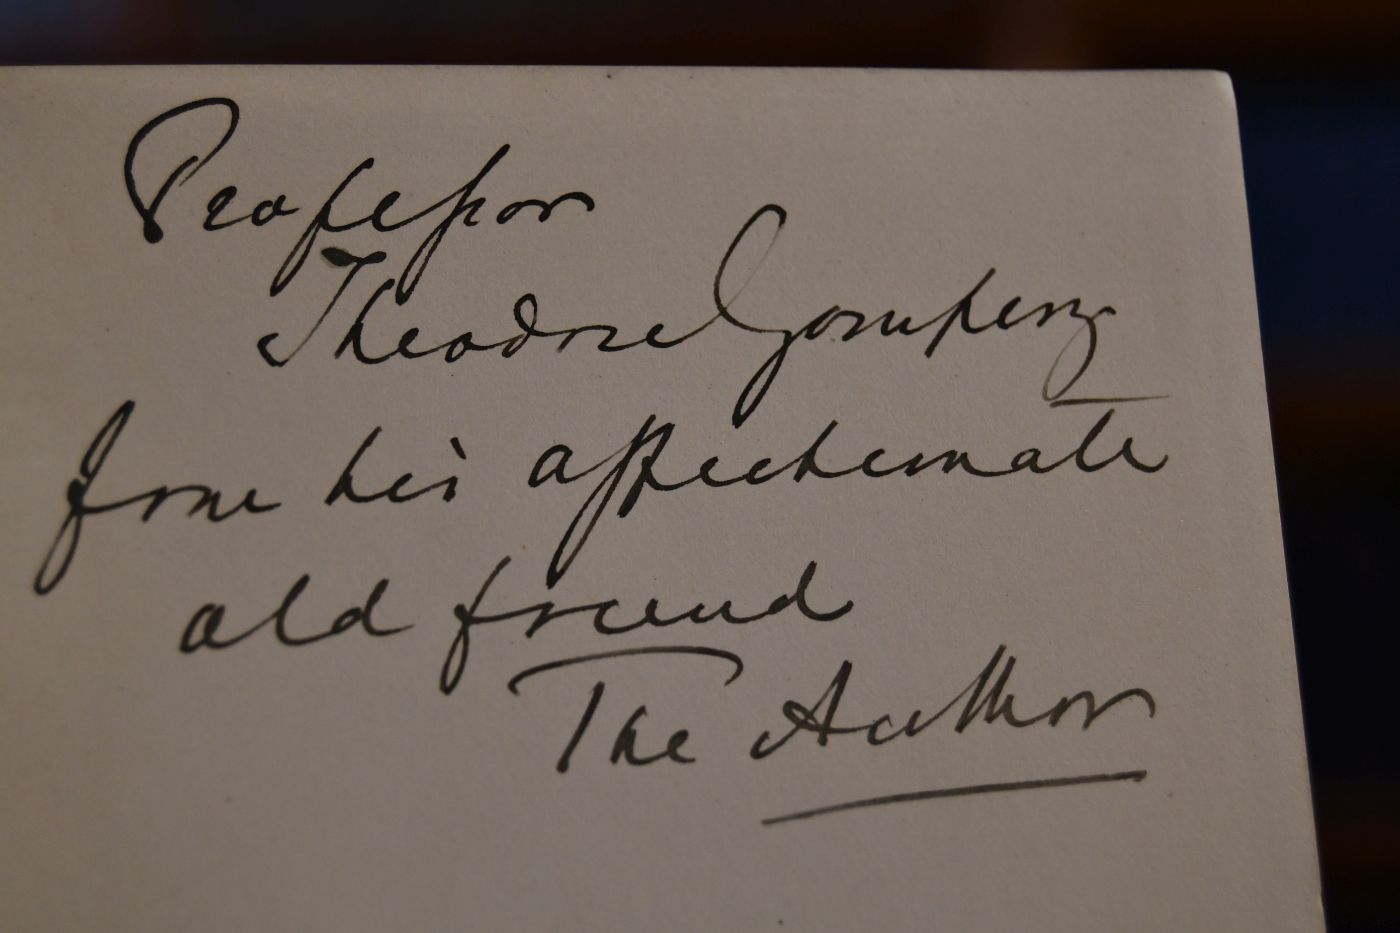 Professor
Theodore Gomperz
from his affectionate
old friend
The Author